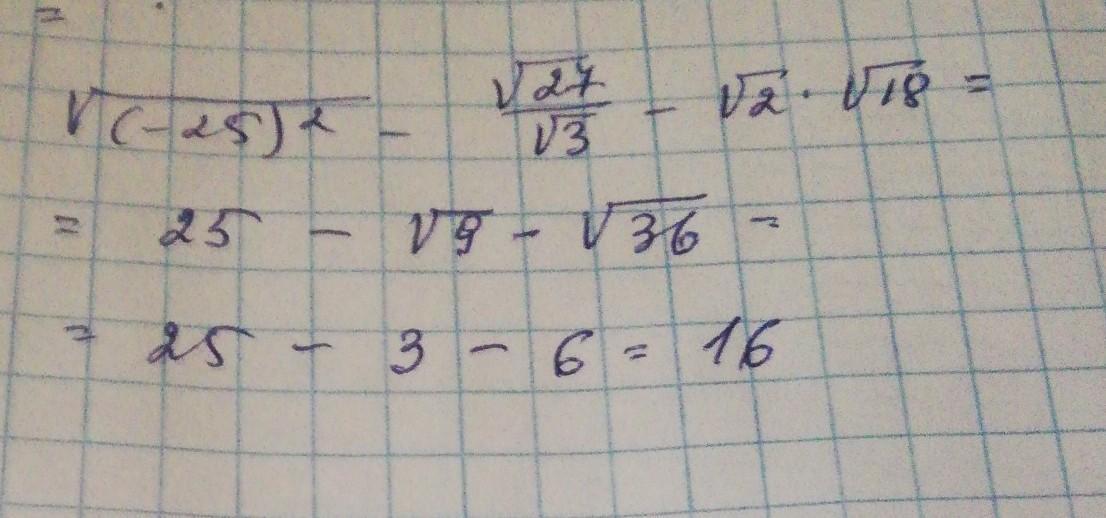 =
√(-25)² - √27/√3 - √2 · √18 =
= 25 - √9 - √36 =
= 25 - 3 - 6 = 16